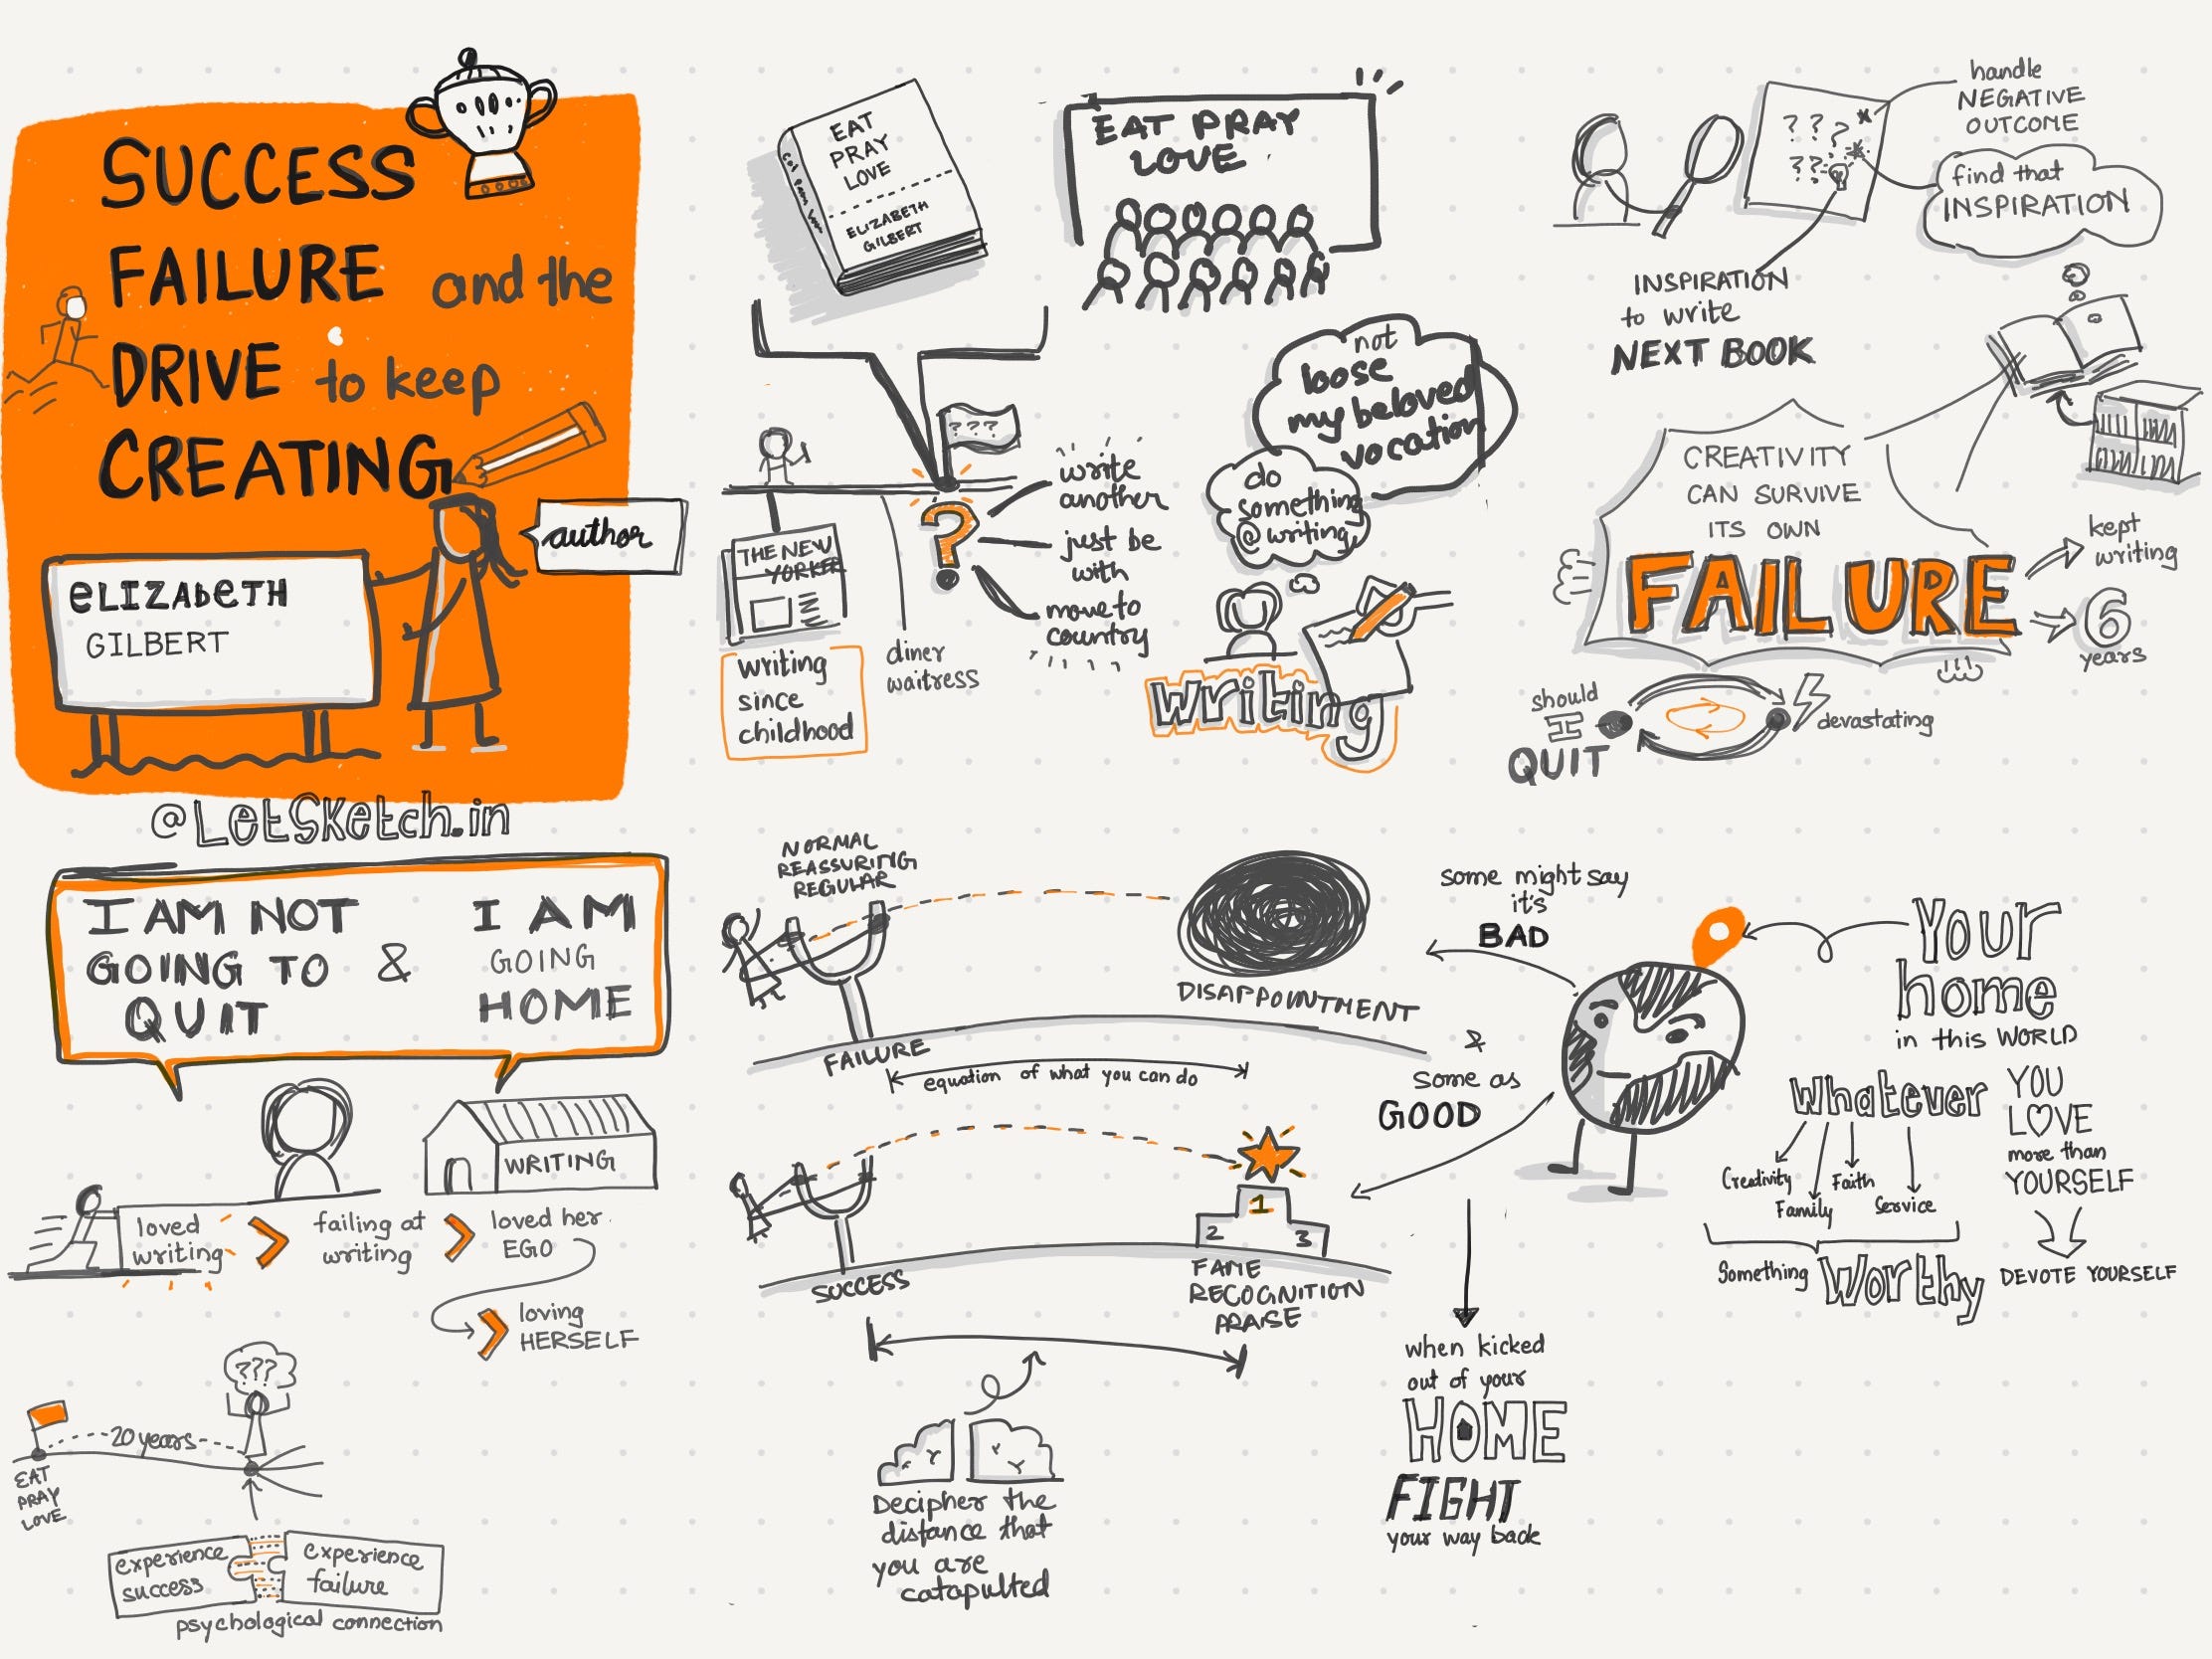 SUCCESS
FAILURE and the
DRIVE to keep
CREATING
author
ELIZAbETH
GILBERT
@LetSketch.in
EAT
PRAY
LOVE
ELIZABETH
GILBERT
EAT PRAY
LOVE
???
THE NEW
YORKER
writing
since
childhood
diner
waitress
?
write
another
just be
with
move to
country
not
loose
my beloved
vocation
do
something
@ writing
writing
? ? ?
? ?
handle
NEGATIVE
OUTCOME
find that
INSPIRATION
INSPIRATION
to write
NEXT BOOK
CREATIVITY
CAN SURVIVE
ITS OWN
FAILURE
kept
writing
6
years
should
I
QUIT
devastating
I AM NOT
GOING TO
QUIT
&
I AM
GOING
HOME
WRITING
loved
writing
failing at
writing
loved her
EGO
loving
HERSELF
???
20 years
EAT
PRAY
LOVE
experience
success
experience
failure
psychological connection
NORMAL
REASSURING
REGULAR
DISAPPOINTMENT
FAILURE
equation of what you can do
SUCCESS
1
2
3
FAME
RECOGNITION
PRAISE
Decipher the
distance that
you are
catapulted
some might say
it's
BAD
&
Some as
GOOD
when kicked
out of your
HOME
FIGHT
your way back
Your
home
in this WORLD
Whatever
YOU
LOVE
more than
YOURSELF
Creativity
Family
Faith
Service
Something Worthy
DEVOTE YOURSELF